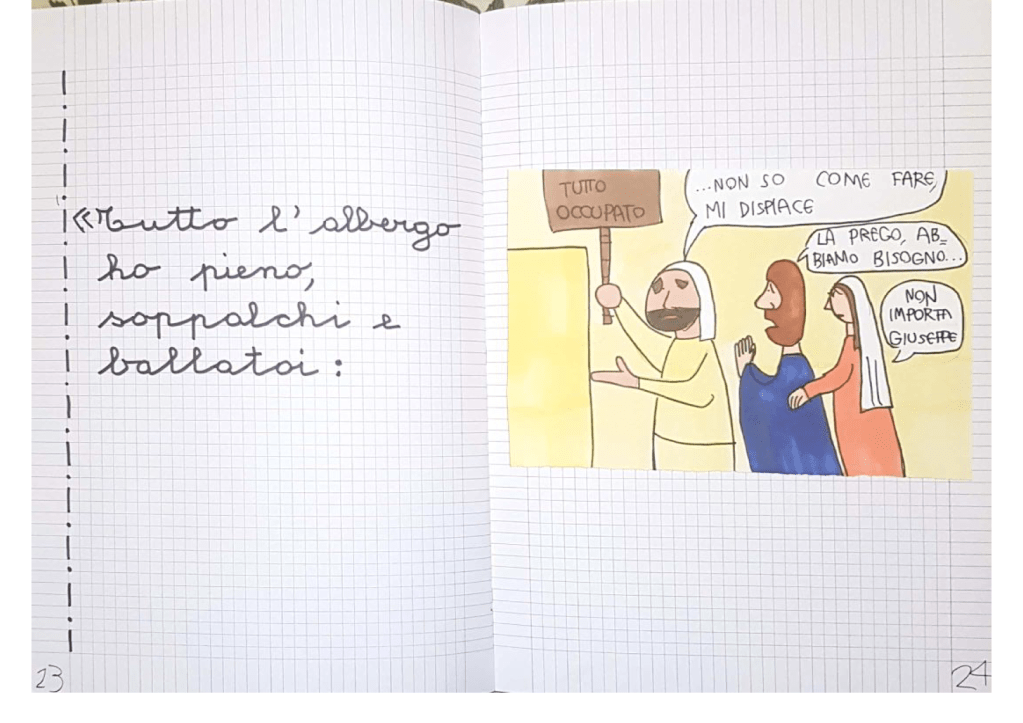 «Tutto l'albergo
ho pieno,
soppalchi e
ballatoi:
23
TUTTO
OCCUPATO
...NON SO COME FARE,
MI DISPIACE
LA PREGO, AB=
BIAMO BISOGNO...
NON
IMPORTA
GIUSEPPE
24